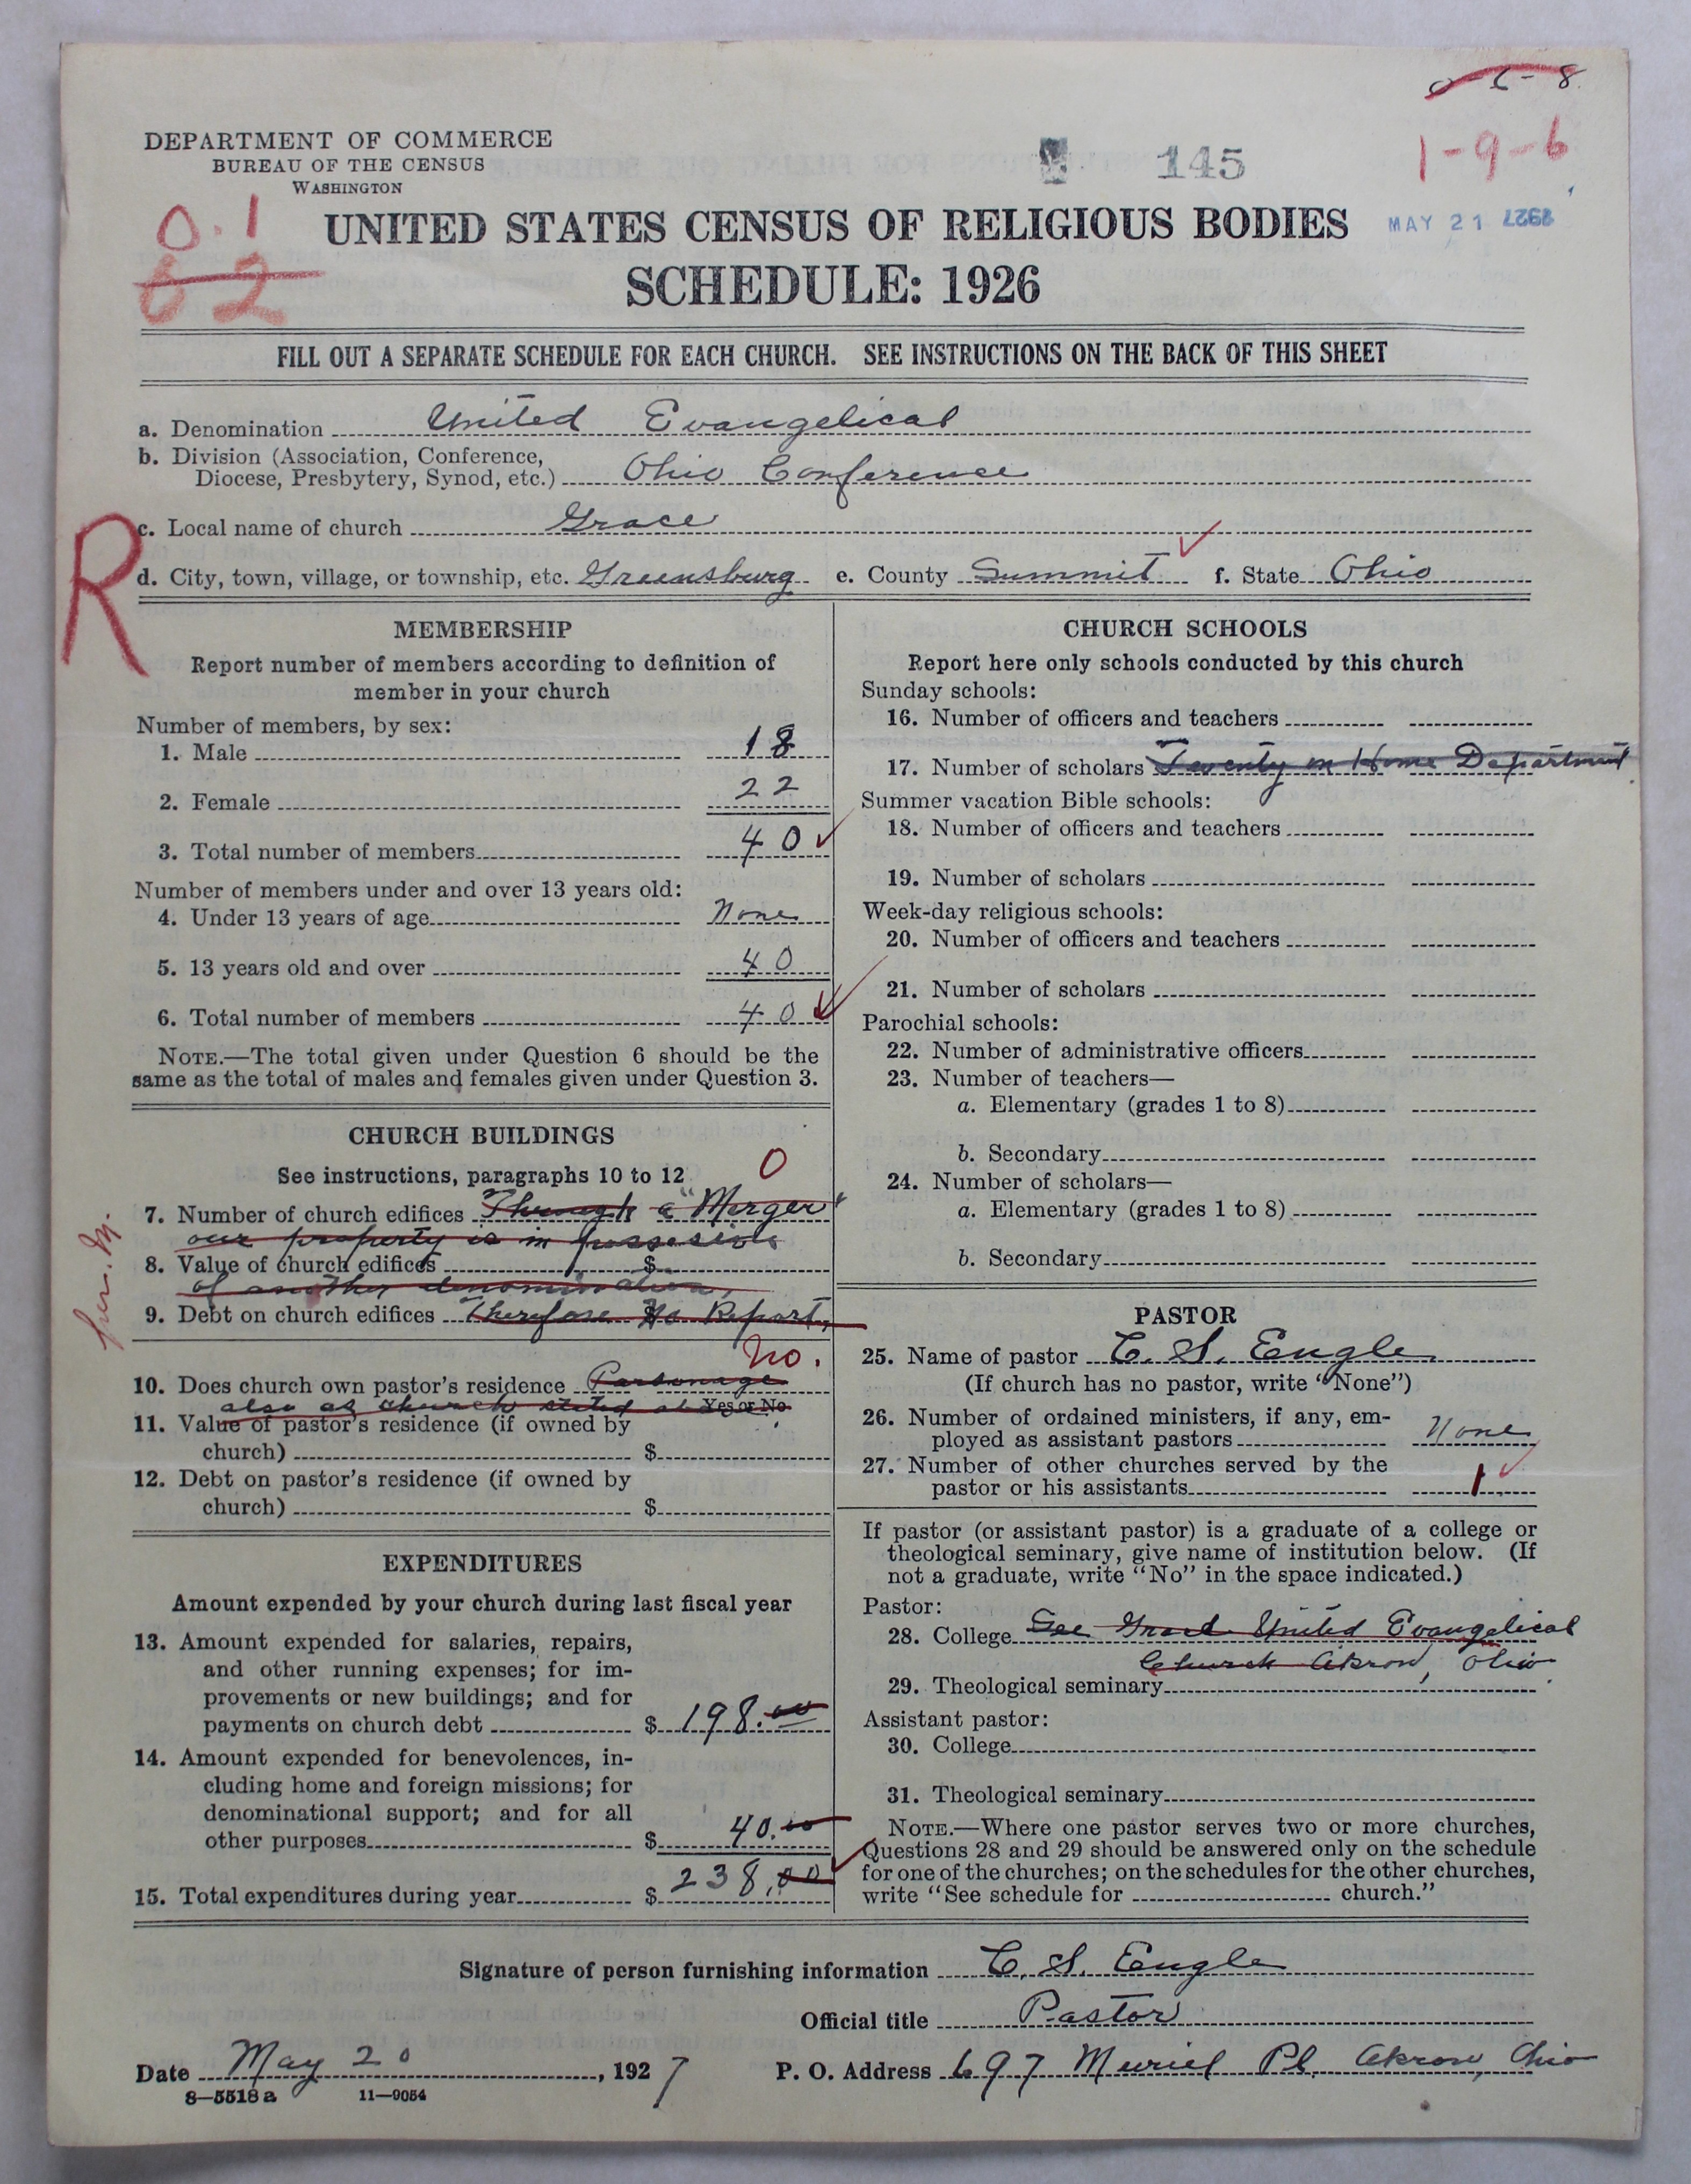 0-6-8
1-9-6
DEPARTMENT OF COMMERCE
BUREAU OF THE CENSUS
WASHINGTON
145
0.1
62
UNITED STATES CENSUS OF RELIGIOUS BODIES
MAY 21 1927
SCHEDULE: 1926
FILL OUT A SEPARATE SCHEDULE FOR EACH CHURCH. SEE INSTRUCTIONS ON THE BACK OF THIS SHEET
a. Denomination United Evangelical
b. Division (Association, Conference,
Diocese, Presbytery, Synod, etc.) Ohio Conference
R
c. Local name of church Grace
d. City, town, village, or township, etc. Greensburg e. County Summit ✓ f. State Ohio
MEMBERSHIP
Report number of members according to definition of
member in your church
Number of members, by sex:
1. Male 18
2. Female 22
3. Total number of members 40 ✓
Number of members under and over 13 years old:
4. Under 13 years of age None
5. 13 years old and over 40
6. Total number of members 40 ✓
NOTE.—The total given under Question 6 should be the
same as the total of males and females given under Question 3.
CHURCH BUILDINGS
See instructions, paragraphs 10 to 12
0
7. Number of church edifices Through a "Merger"
our property is in possession
8. Value of church edifices $
of another denomination,
9. Debt on church edifices Therefore $ No Report,
no.
10. Does church own pastor's residence Parsonage
also as church stated above Yes or No
11. Value of pastor's residence (if owned by
church) $
12. Debt on pastor's residence (if owned by
church) $
EXPENDITURES
Amount expended by your church during last fiscal year
13. Amount expended for salaries, repairs,
and other running expenses; for im-
provements or new buildings; and for
payments on church debt $ 198.00
14. Amount expended for benevolences, in-
cluding home and foreign missions; for
denominational support; and for all
other purposes $ 40.00
15. Total expenditures during year $ 238.00 ✓
CHURCH SCHOOLS
Report here only schools conducted by this church
Sunday schools:
16. Number of officers and teachers
17. Number of scholars Twenty in Home Department
Summer vacation Bible schools:
18. Number of officers and teachers
19. Number of scholars
Week-day religious schools:
20. Number of officers and teachers
21. Number of scholars
Parochial schools:
22. Number of administrative officers
23. Number of teachers—
a. Elementary (grades 1 to 8)
b. Secondary
24. Number of scholars—
a. Elementary (grades 1 to 8)
b. Secondary
PASTOR
25. Name of pastor C. S. Engle
(If church has no pastor, write "None")
26. Number of ordained ministers, if any, em-
ployed as assistant pastors None
27. Number of other churches served by the
pastor or his assistants 1 ✓
If pastor (or assistant pastor) is a graduate of a college or
theological seminary, give name of institution below. (If
not a graduate, write "No" in the space indicated.)
Pastor:
28. College See Grace United Evangelical
Church Akron, Ohio
29. Theological seminary
Assistant pastor:
30. College
31. Theological seminary
NOTE.—Where one pastor serves two or more churches,
Questions 28 and 29 should be answered only on the schedule
for one of the churches; on the schedules for the other churches,
write "See schedule for church."
Signature of person furnishing information C. S. Engle
Official title Pastor
Date May 20, 1927 P. O. Address 697 Muriel Pl. Akron, Ohio
8—5518 a 11—9054